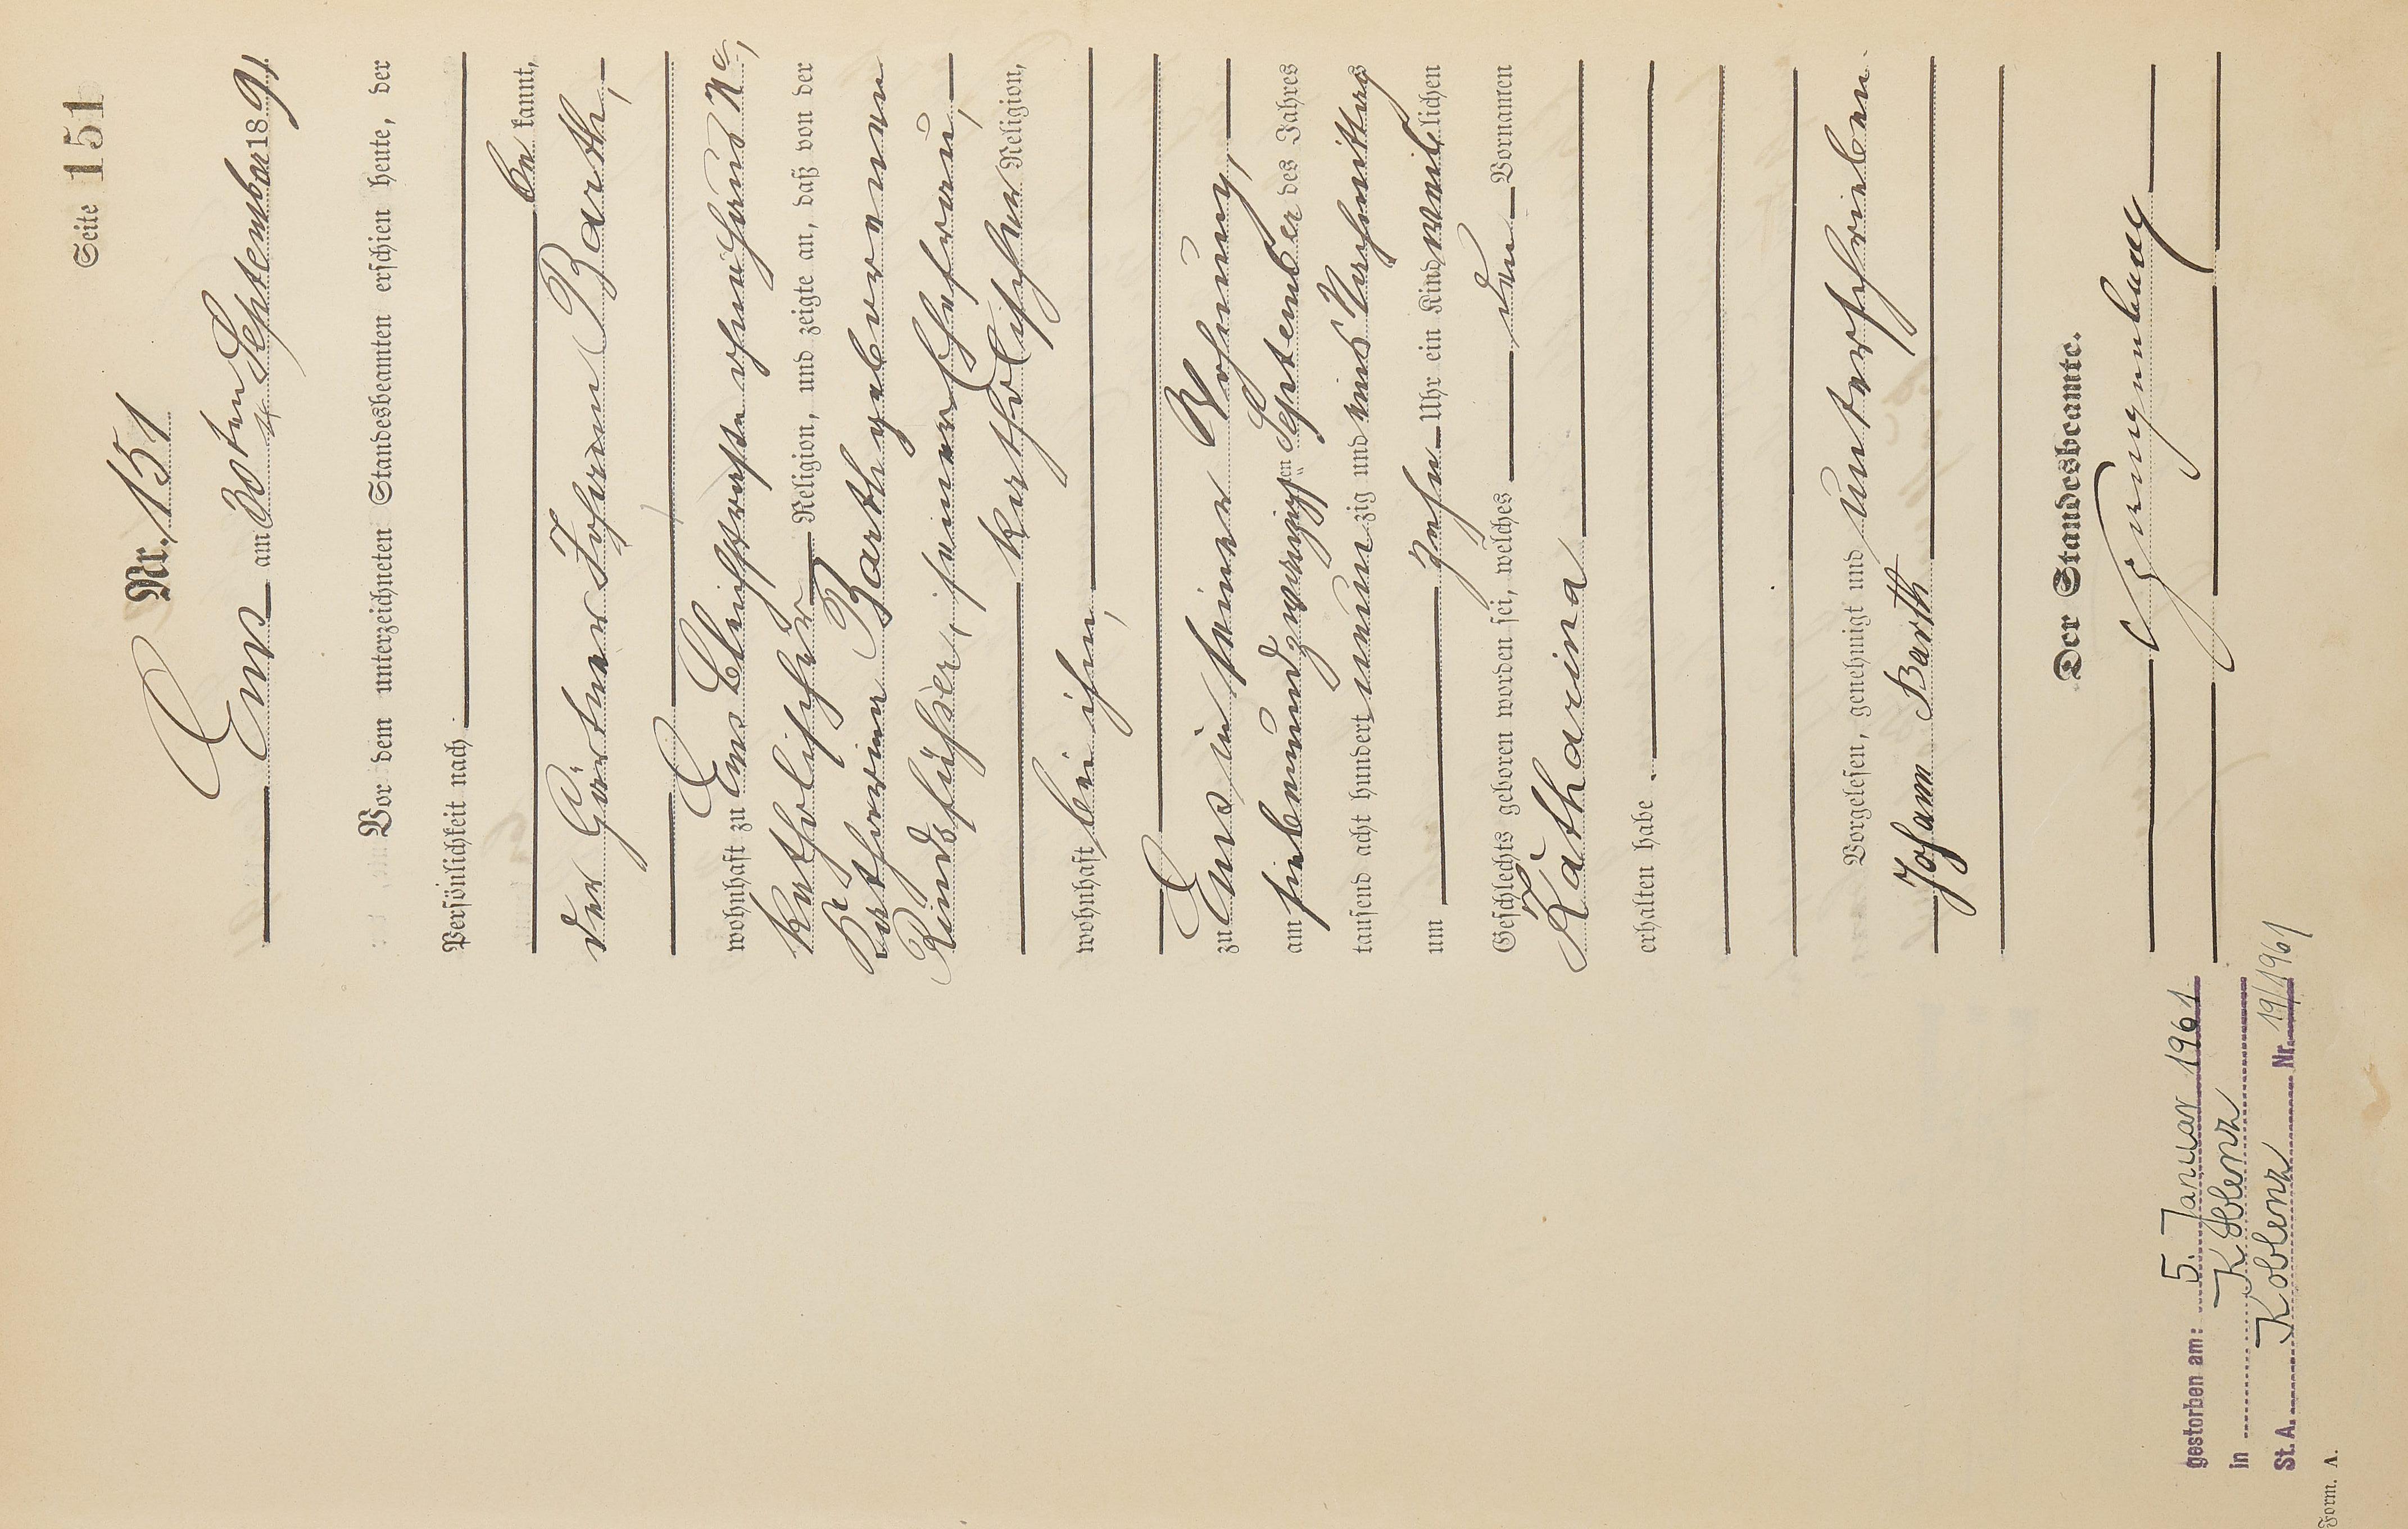 Seite 151
Nr. 151
Ems am 30ten September 1891
Vor dem unterzeichneten Standesbeamten erschien heute, der
Persönlichkeit nach
be kannt,
der Gärtner Johann Barth,
wohnhaft zu Ems Bleichstraße ohne Haus No,
katholischer Religion, und zeigte an, daß von der
Katharina Barth geborenen
Rindsfüßer, seiner Ehefrau,
katholischer Religion,
wohnhaft bei ihm,
zu Ems in seiner Wohnung,
am siebenundzwanzigsten September des Jahres
tausend acht hundert neunzig und eins Nachmittags
um zehn Uhr ein Kind weiblichen
Geschlechts geboren worden sei, welches den Vornamen
Katharina
erhalten habe.
Vorgelesen, genehmigt und unterschrieben
Johann Barth
Der Standesbeamte.
gestorben am: 5. Januar 1961
in Koblenz
St. A. Koblenz Nr. 19/1961
Form. A.